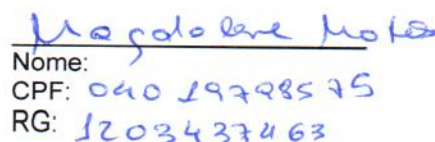 Magdalene Mota
Nome:
CPF: 040 197985 75
RG: 1203437463